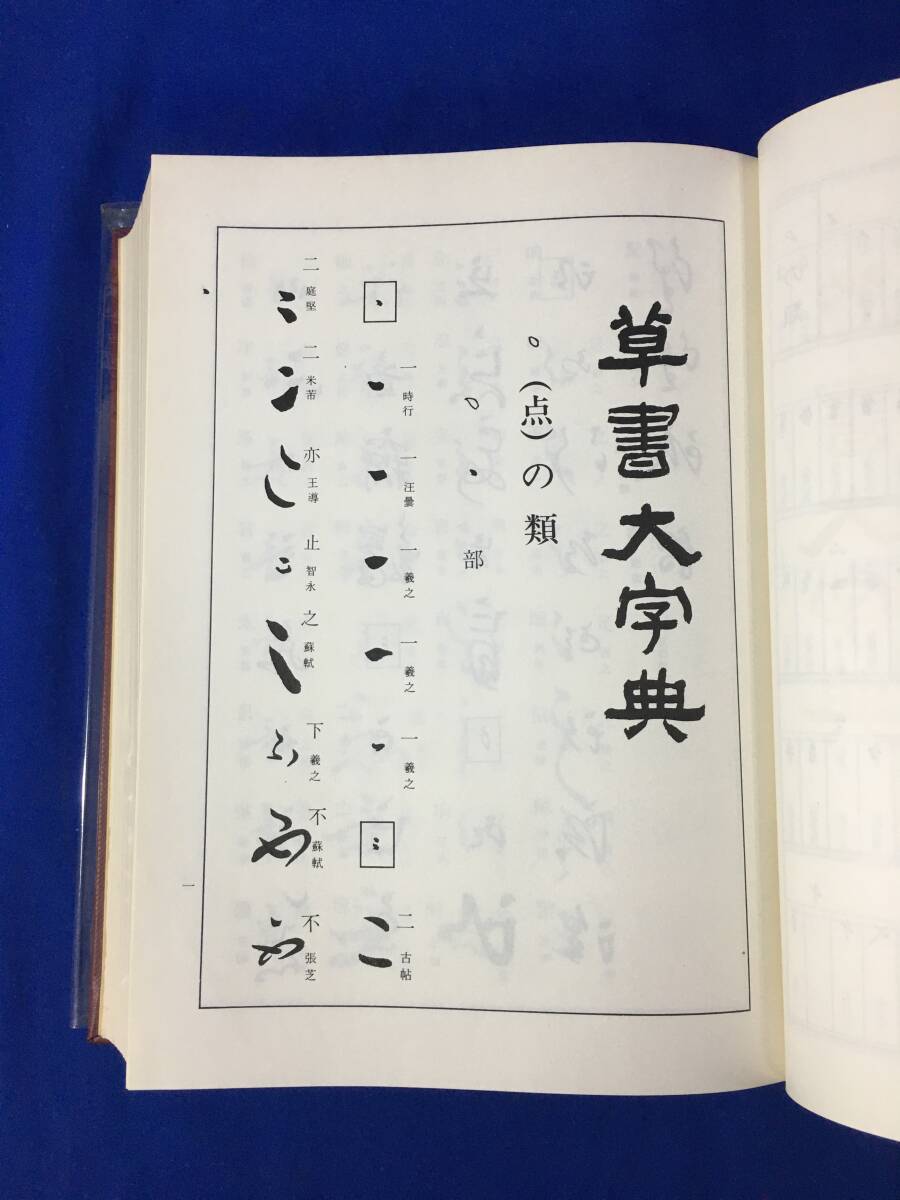 草書大字典
。(点)の類
部
一 時行
一 汪曇
一 羲之
一 羲之
一 羲之
二 古帖
二 庭堅
二 米芾
亦 王導
止 智永
之 蘇軾
下 羲之
不 蘇軾
不 張芝
一